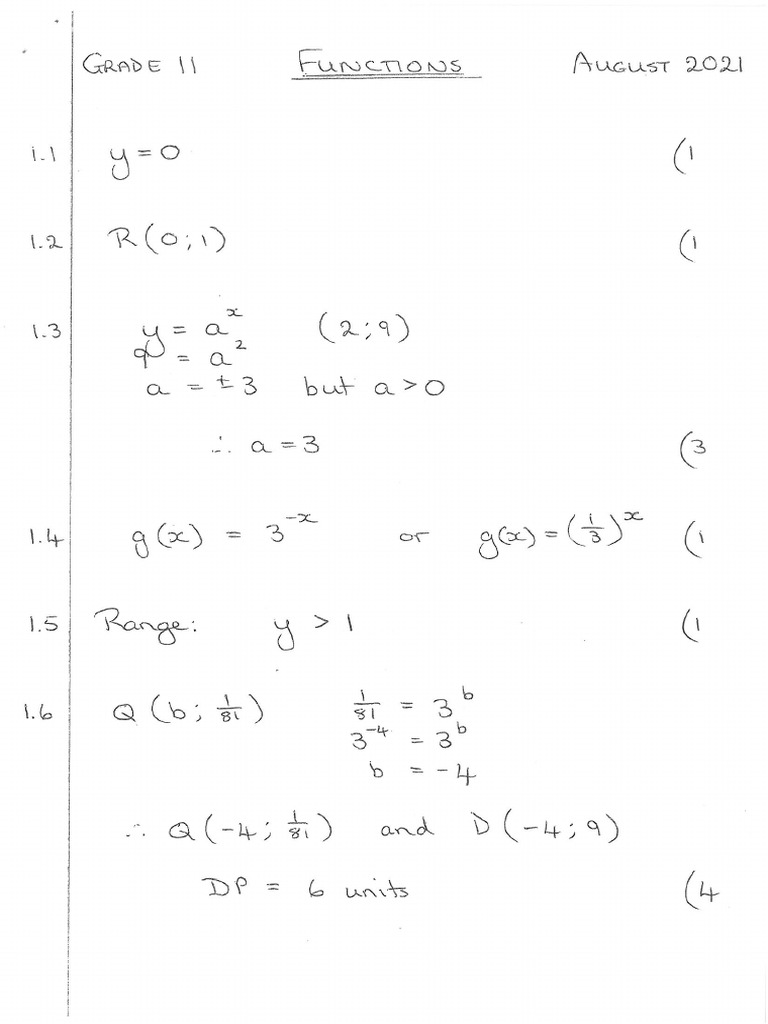 GRADE 11 FUNCTIONS AUGUST 2021
1.1 y = 0 (1
1.2 R(0;1) (1
1.3 y = a^x (2;9)
9 = a^2
a = ±3 but a > 0
∴ a = 3 (3
1.4 g(x) = 3^-x or g(x) = (1/3)^x (1
1.5 Range: y > 1 (1
1.6 Q(b; 1/81) 1/81 = 3^b
3^-4 = 3^b
b = -4
∴ Q(-4; 1/81) and D(-4; 9)
DP = 6 units (4